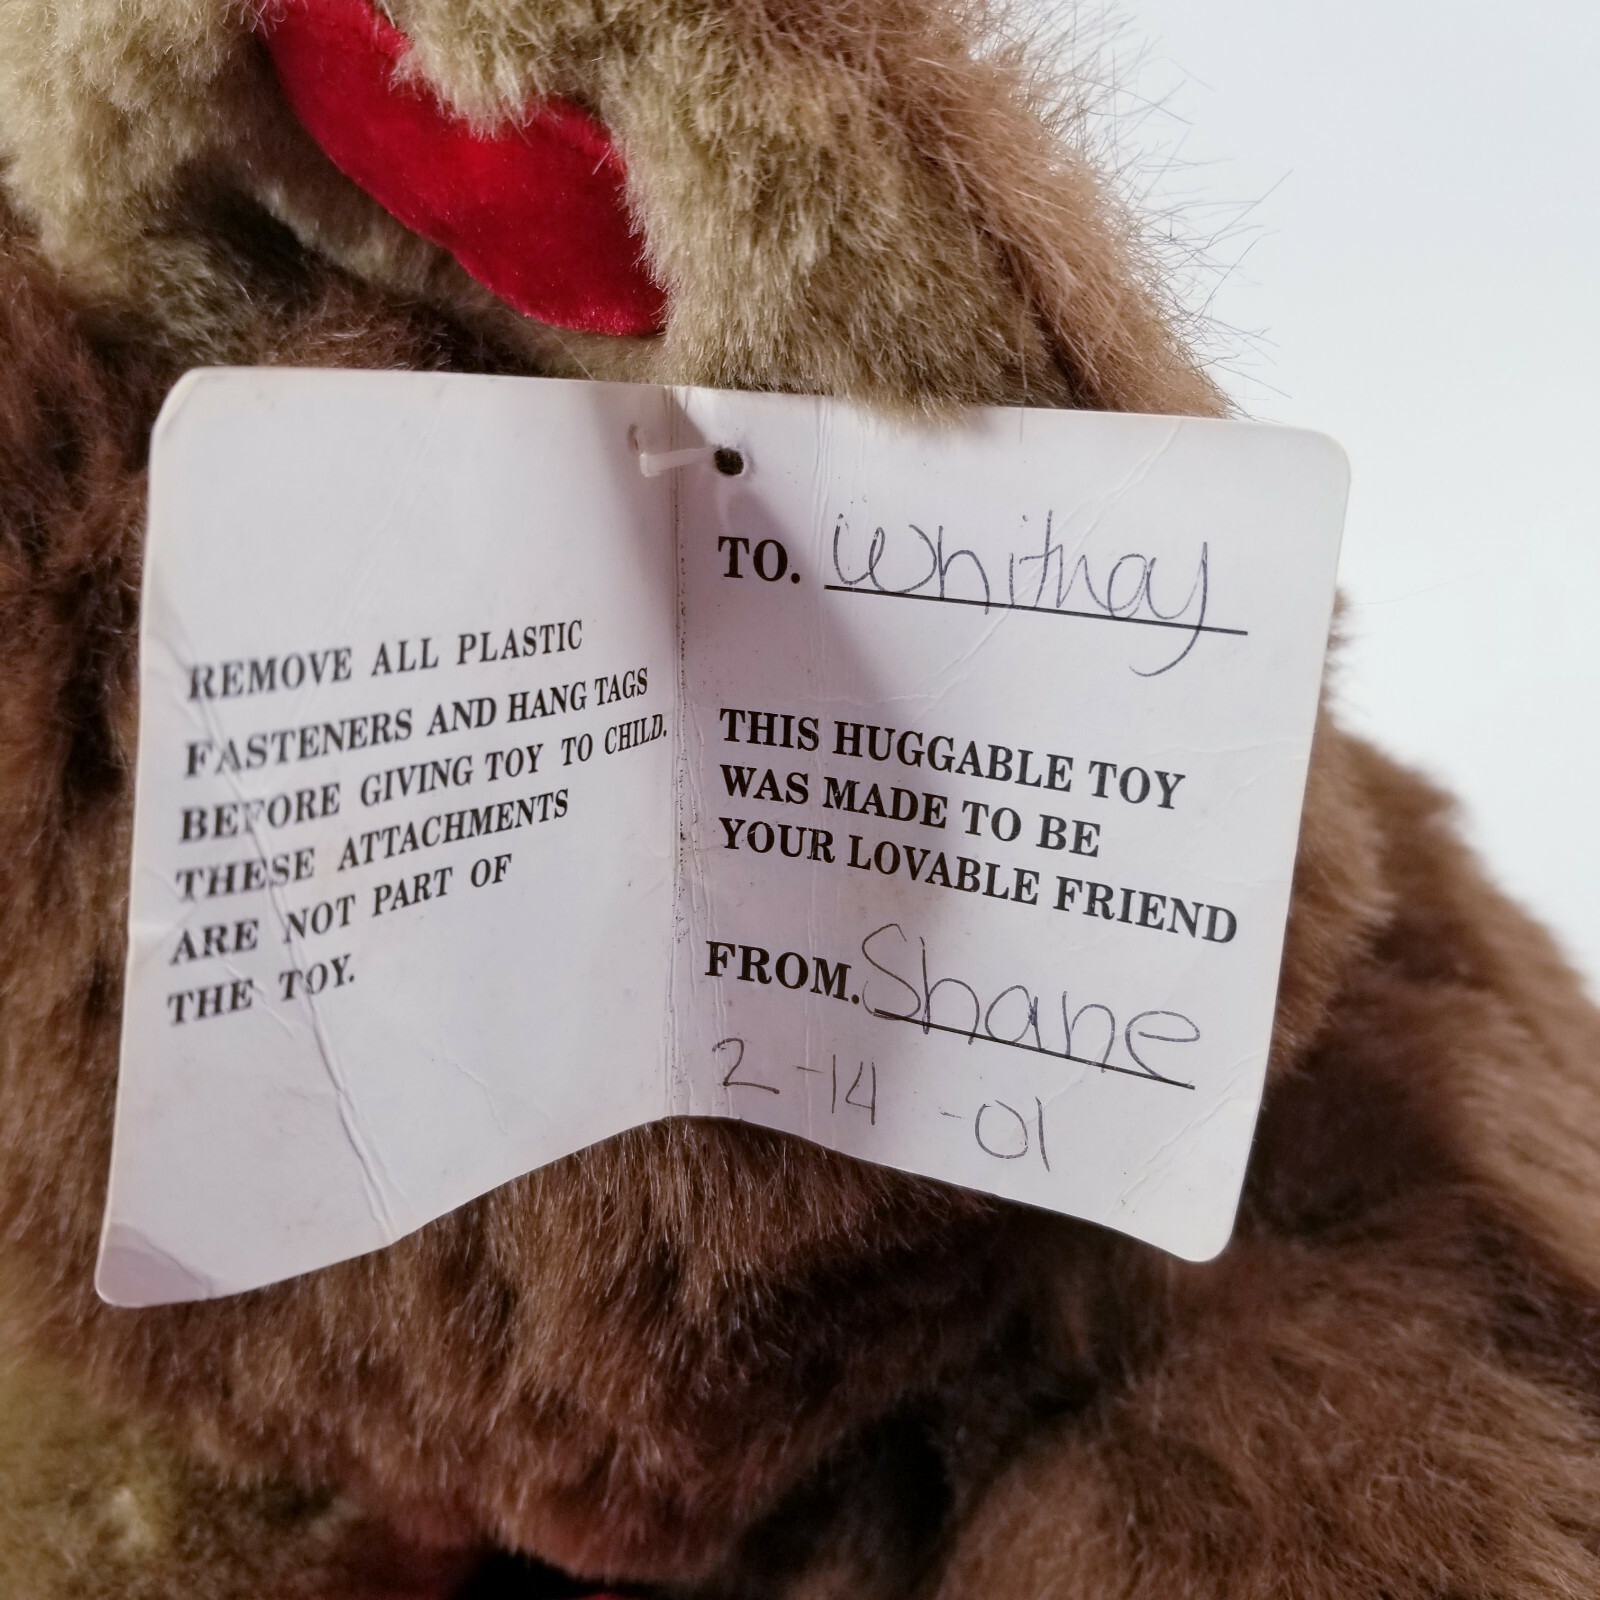 REMOVE ALL PLASTIC
FASTENERS AND HANG TAGS
BEFORE GIVING TOY TO CHILD.
THESE ATTACHMENTS
ARE NOT PART OF
THE TOY.
TO. Whitnay
THIS HUGGABLE TOY
WAS MADE TO BE
YOUR LOVABLE FRIEND
FROM. Shane
2-14-01